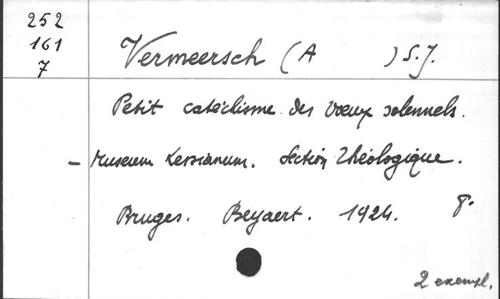 252
161
7
Vermeersch (A ) S.J.
Petit catéchisme des vœux solennels.
- Museum Lessianum. Section Théologique.
Bruges. Beyaert. 1924. 8°.
2 exempl.